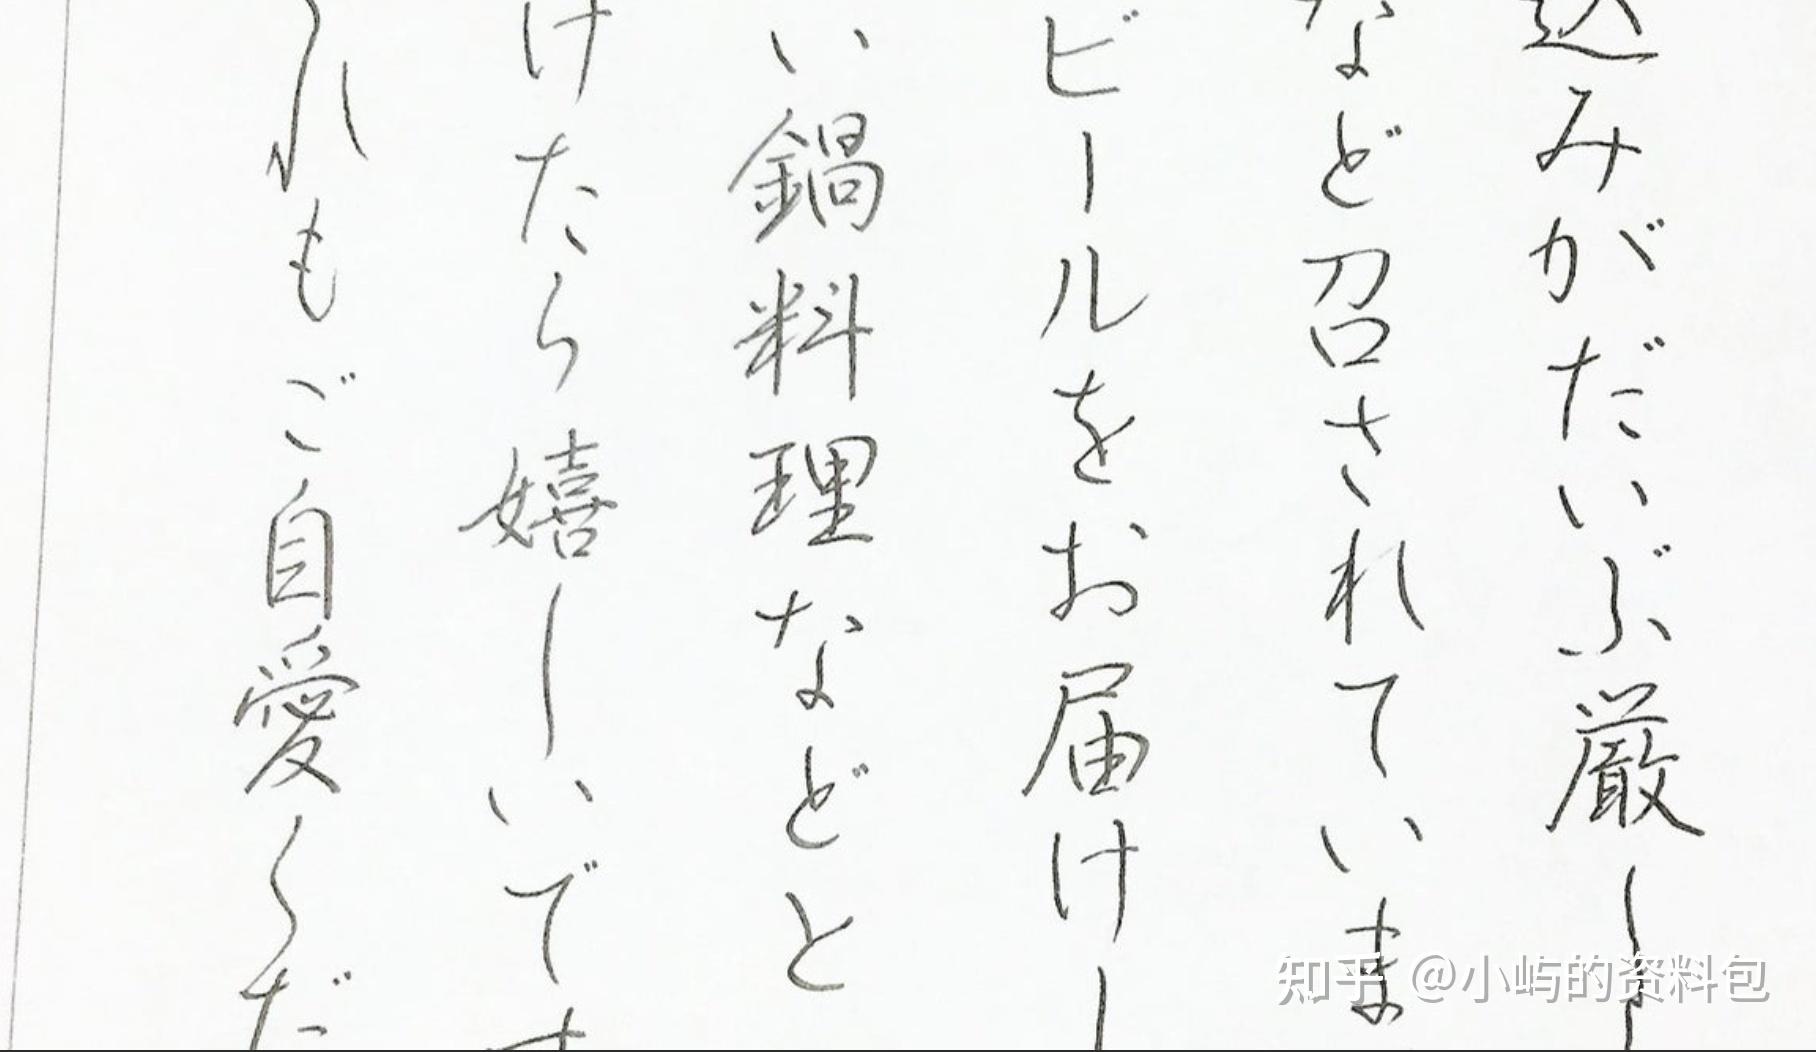 込みがだいぶ厳し
など召されていま
ビールをお届けし
い鍋料理などと
けたら嬉しいです
れもご自愛くだ
知乎 @小屿的资料包